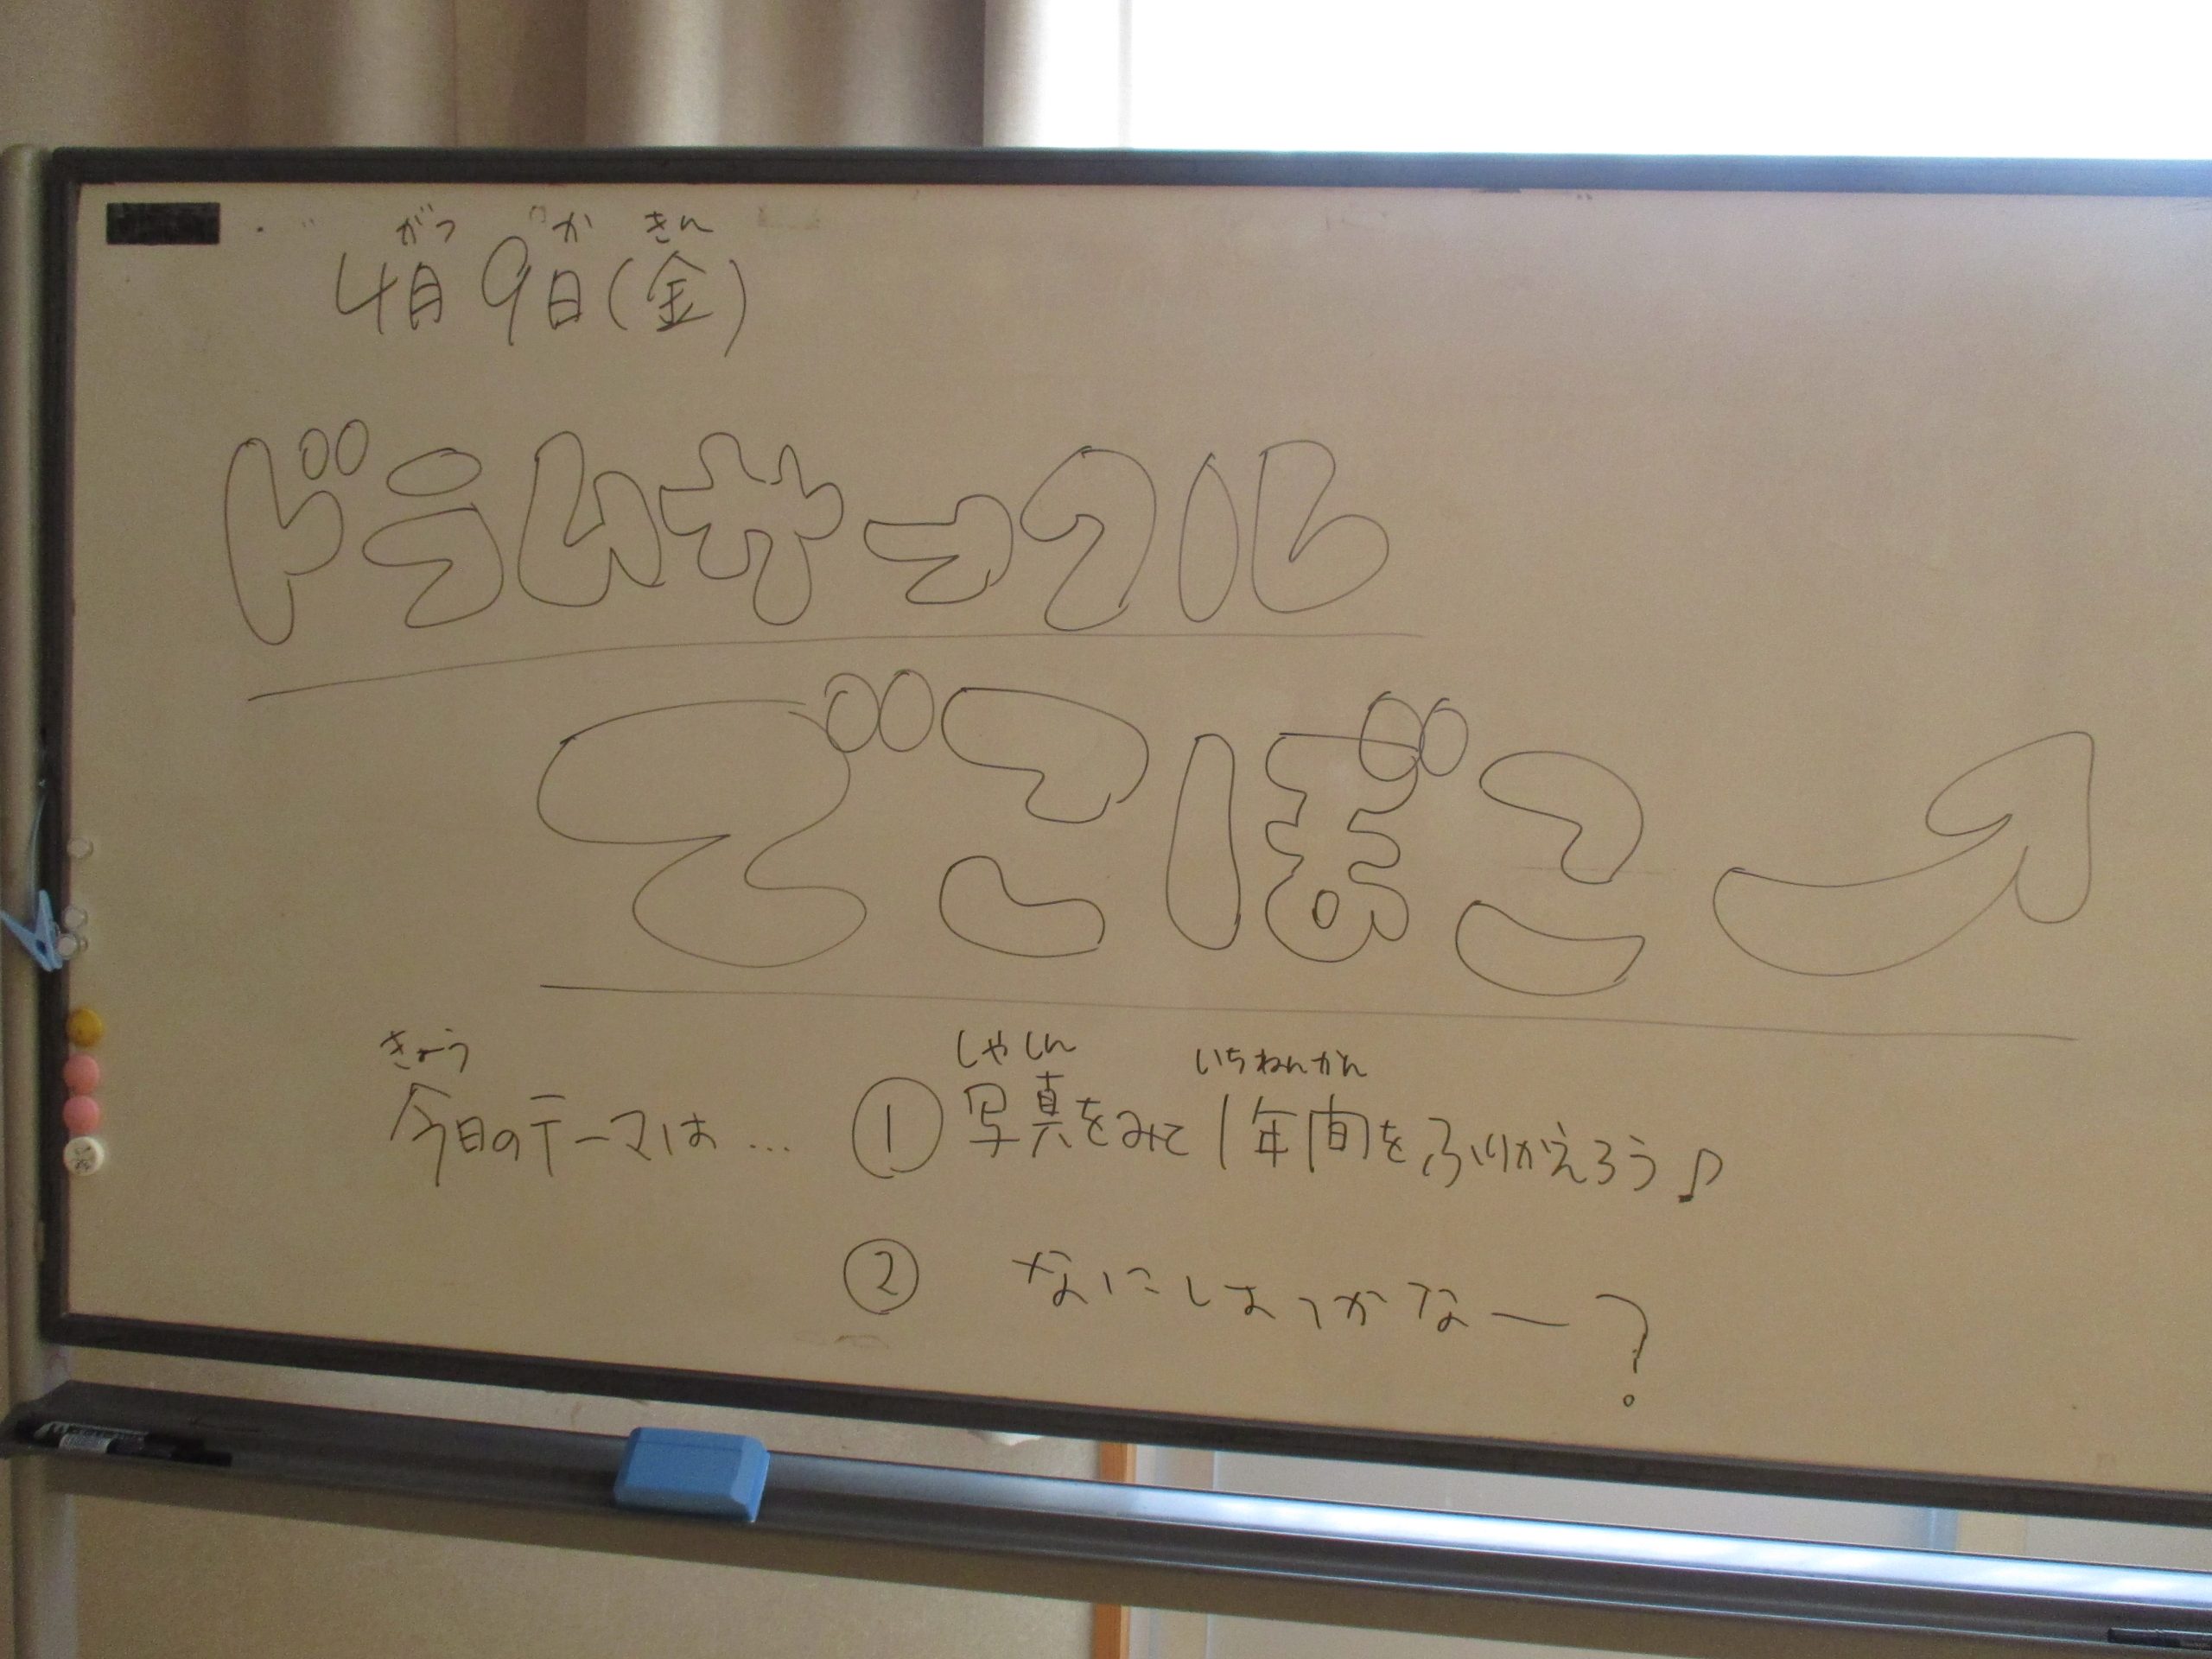 がつ か きん
4月9日(金)
ドラムサークル
でこぼこ
きょう しゃしん いちねんかん
今日のテーマは… ① 写真をみて1年間をふりかえろう♪
② なにしよっかなー?